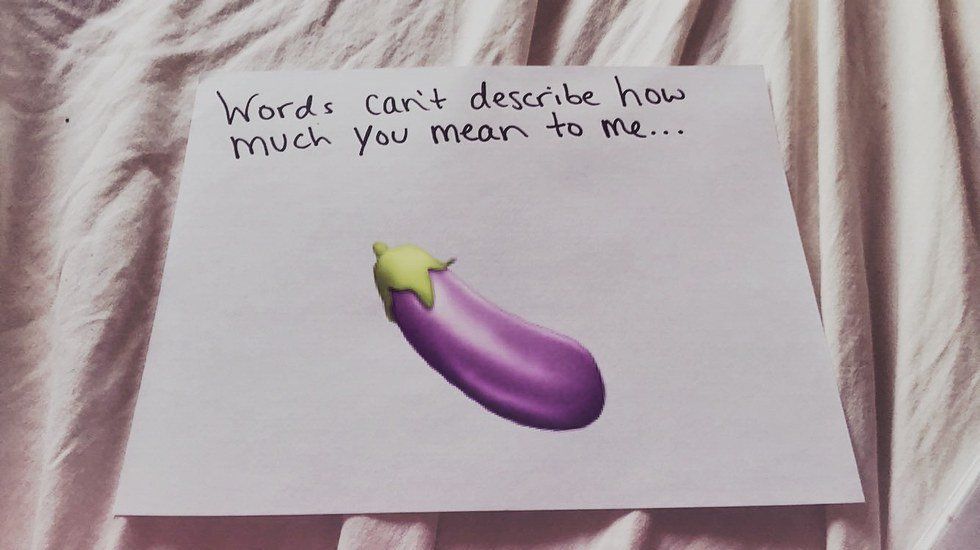 Words can't describe how
much you mean to me...